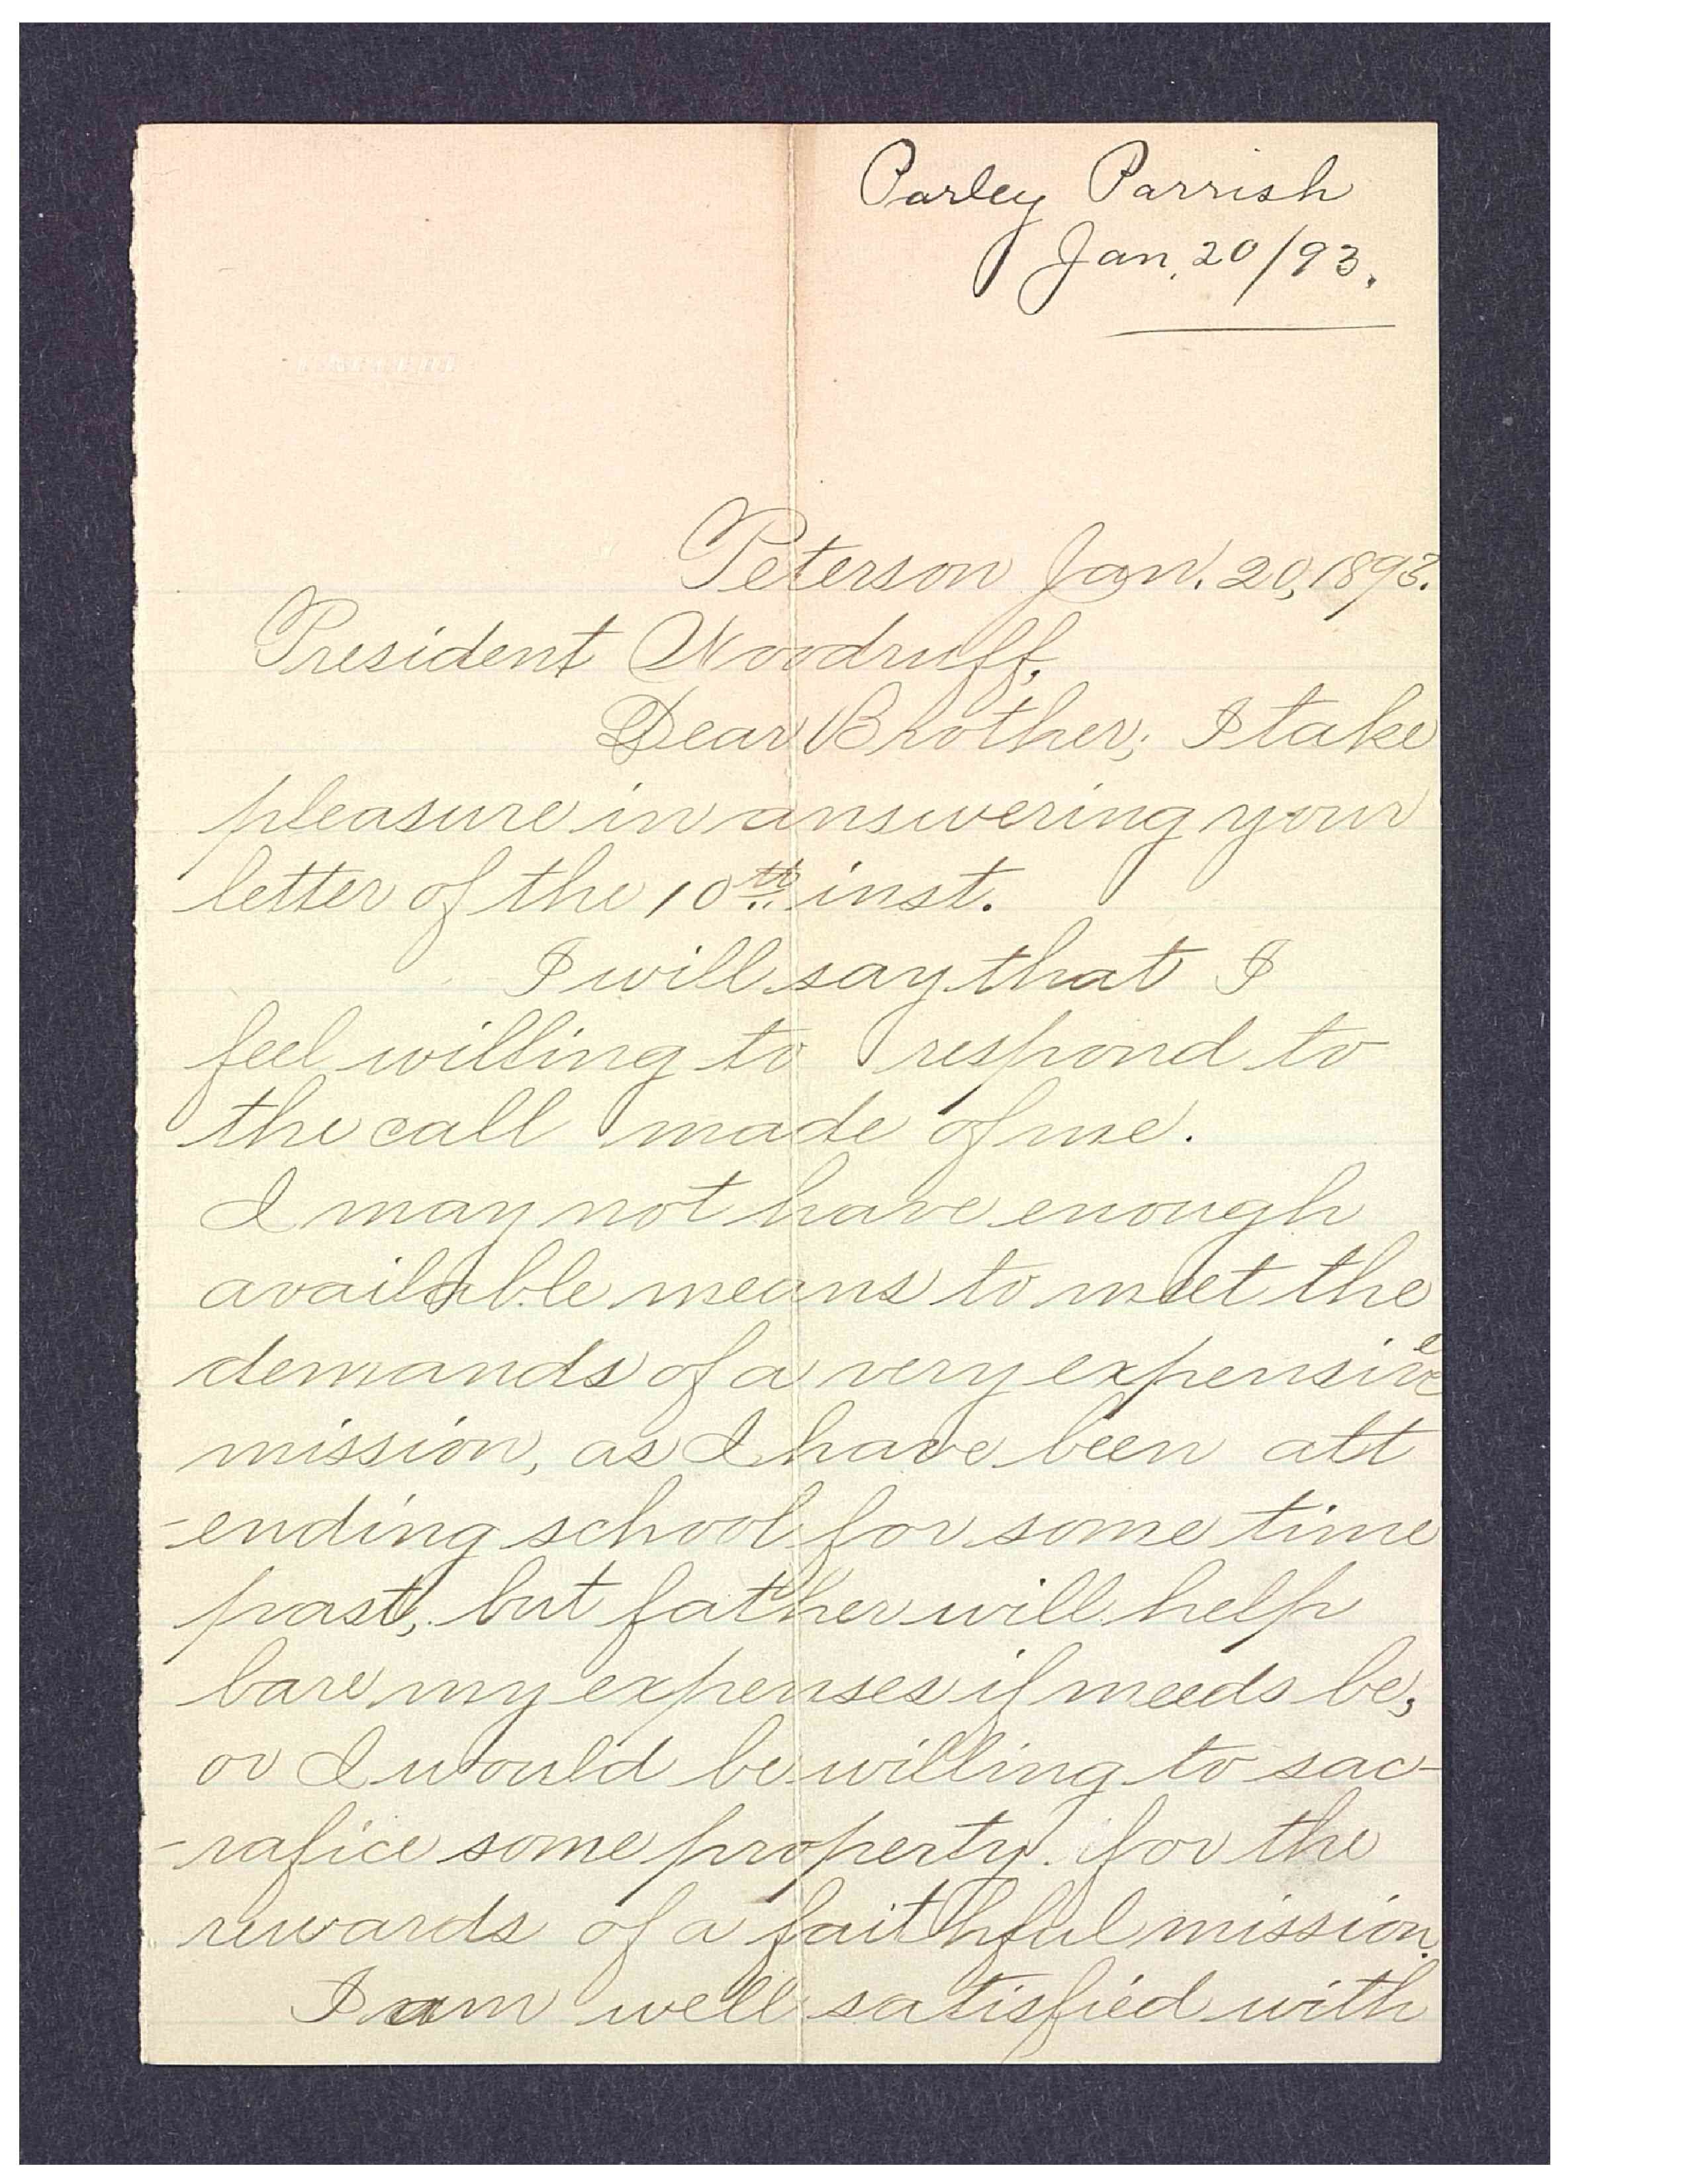 Parley Parrish
Jan. 20/93.
Peterson Jan. 20, 1893.
President Woodruff,
Dear Brother; I take
pleasure in answering your
letter of the 10th inst.
I will say that I
feel willing to respond to
the call made of me.
I may not have enough
available means to meet the
demands of a very expensive
mission, as I have been att
-ending school for some time
past, but father will help
bare my expenses if needs be,
or I would be willing to sac-
-rafice some property for the
rewards of a faithful mission.
I am well satisfied with